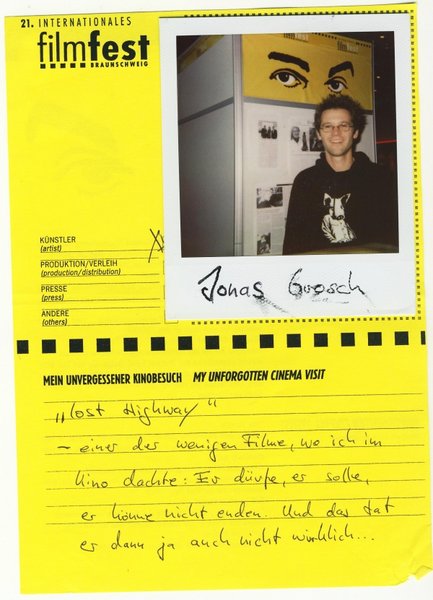 21. INTERNATIONALES
filmfest
BRAUNSCHWEIG
KÜNSTLER
(artist)
X
PRODUKTION/VERLEIH
(production/distribution)
PRESSE
(press)
ANDERE
(others)
Jonas Grosch
MEIN UNVERGESSENER KINOBESUCH MY UNFORGOTTEN CINEMA VISIT
„Lost Highway"
– einer der wenigen Filme, wo ich im
Kino dachte: Er dürfe, er solle,
er könne nicht enden. Und das tat
er dann ja auch nicht wirklich...